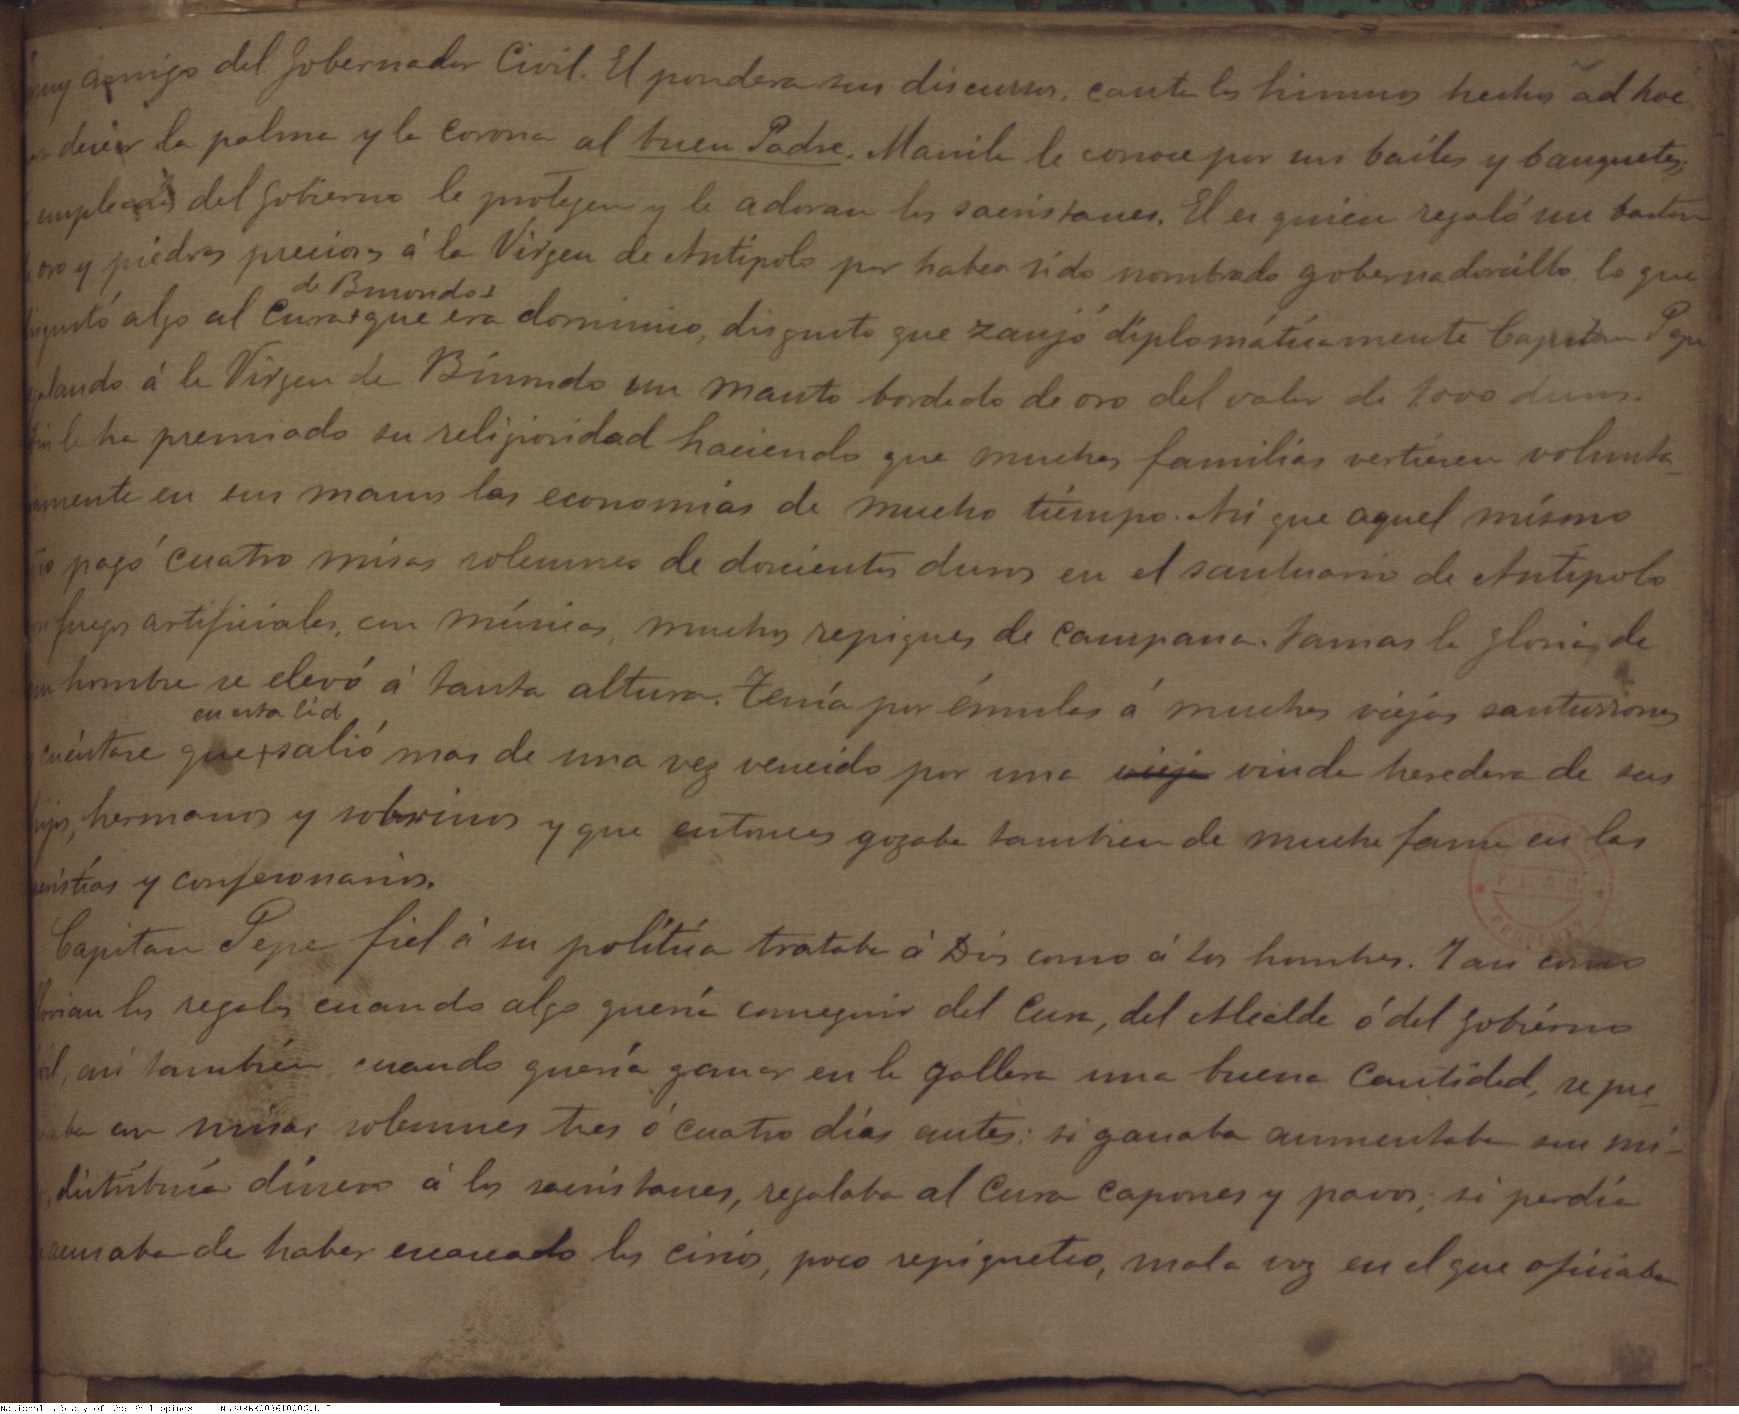 muy amigo del Gobernador Civil. El pondera sus discursos, canta los himnos hechos ad hoc
decir la palma y la corona al buen Padre. Manila le conoce por sus bailes y banquetes;
empleados del Gobierno le protegen y le adoran los sacristanes. El es quien regaló un baston
oro y piedras preciosas á la Virgen de Antipolo por haber sido nombrado gobernadorcillo, lo que
de Binondo
disgustó algo al Cura que era dominico, disgusto que zanjó diplomáticamente Capitan Pepe
á la Virgen de Binondo un manto bordado de oro del valor de 1000 duros.
le ha premiado su religiosidad haciendo que muchas familias vertiesen volunta-
mente en sus manos las economías de mucho tiempo. Asi que aquel mismo
pagó cuatro misas solemnes de doscientos duros en el santuario de Antipolo
fuegos artificiales, con músicas, muchos repiques de campana. Jamas la gloria de
un hombre se elevó á tanta altura. Tenía por émulas á muchas viejas santurronas
en esta lid
cuéntase que salió mas de una vez vencido por una vieja viuda heredera de sus
hijos, hermanos y sobrinos y que entonces gozaba tambien de mucha fama en las
y confesonarios.
Capitan Pepe fiel á su política trataba á Dios como á los hombres. Tan como
los regalos cuando algo quería conseguir del Cura, del Alcalde ó del Gobierno
asi también cuando quería ganar en la gallera una buena cantidad, se pre-
con misas solemnes tres ó cuatro días antes: si ganaba aumentaba sus mi-
distribuía dinero á los sacristanes, regalaba al Cura capones y pavos; si perdía
acusaba de haber escaseado los cirios, poco repiqueteo, mala voz en el que oficiaba
National Library of the Philippines